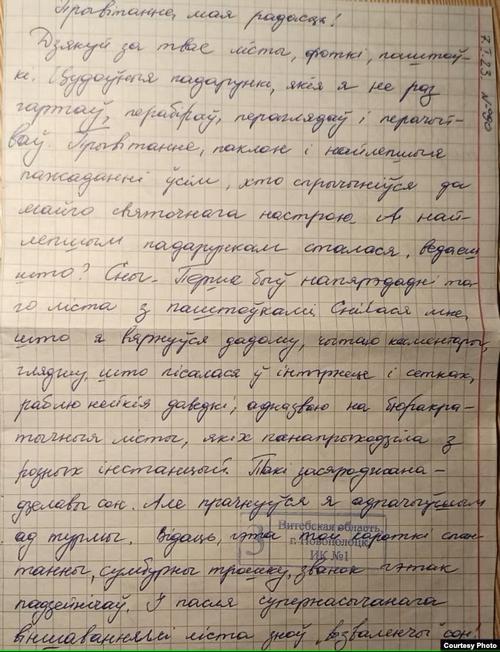 Прывітанне, мая радасць!
Дзякуй за твае лісты, фоткі, паштоў-
кі. Цудоўныя падарункі, якія я не раз
гартаў, перабіраў, пераглядаў і перачыт-
ваў. Прывітанне, паклон і найлепшыя
пажаданні ўсім, хто спрычыніўся да
майго святочнага настрою. А най-
лепшым падарункам сталася, ведаеш
што? Сны. Першы быў напярэдадні та-
го ліста з паштоўкамі. Снілася мне,
што я вярнуўся дадому, чытаю каментары,
гляджу, што пісалася ў інтэрнеце і сетках,
раблю нейкія даведкі, адказваю на бюракра-
тычныя лісты, якіх панапрыходзіла з
розных інстанцый. Такі засяроджана-
дзелавы сон. Але прачнуўся я адпачыўшым
ад турмы. Відаць, гэта той кароткі спан-
танны, сумбурны трошку, званок гэтак
падзейнічаў. І пасля супернасычанага
віншаваннямі ліста зноў "вызваленчы" сон!
7.1.23 №90
3
Витебская область,
г. Новополоцк,
ИК №1
Courtesy Photo